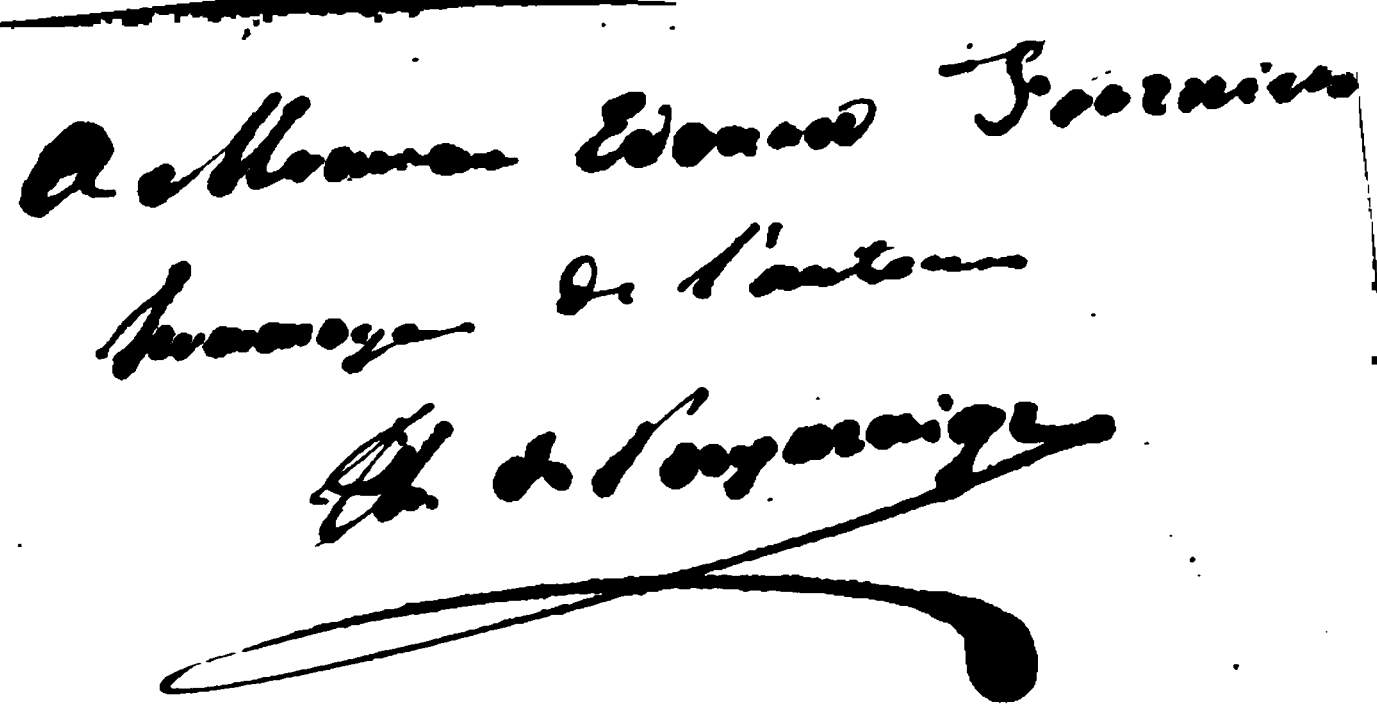 A Monsieur Edouard Fournier
hommage de l'auteur
Ch de